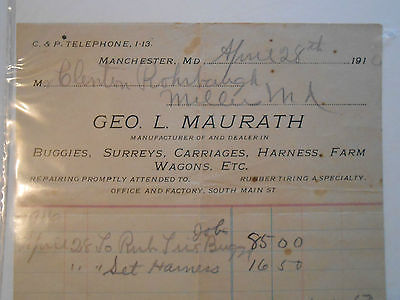 C. & P. TELEPHONE, 1-13.
MANCHESTER, MD. April 28th 191
M Clinton Rohrbaugh
Miller Md.
GEO. L. MAURATH
MANUFACTURER OF AND DEALER IN
BUGGIES, SURREYS, CARRIAGES, HARNESS, FARM
WAGONS, ETC.
REPAIRING PROMPTLY ATTENDED TO. RUBBER TIRING A SPECIALTY.
OFFICE AND FACTORY, SOUTH MAIN ST.
1910
Job
April 28 To Rub Buggy 85 00
" " " Set Harness 16 50